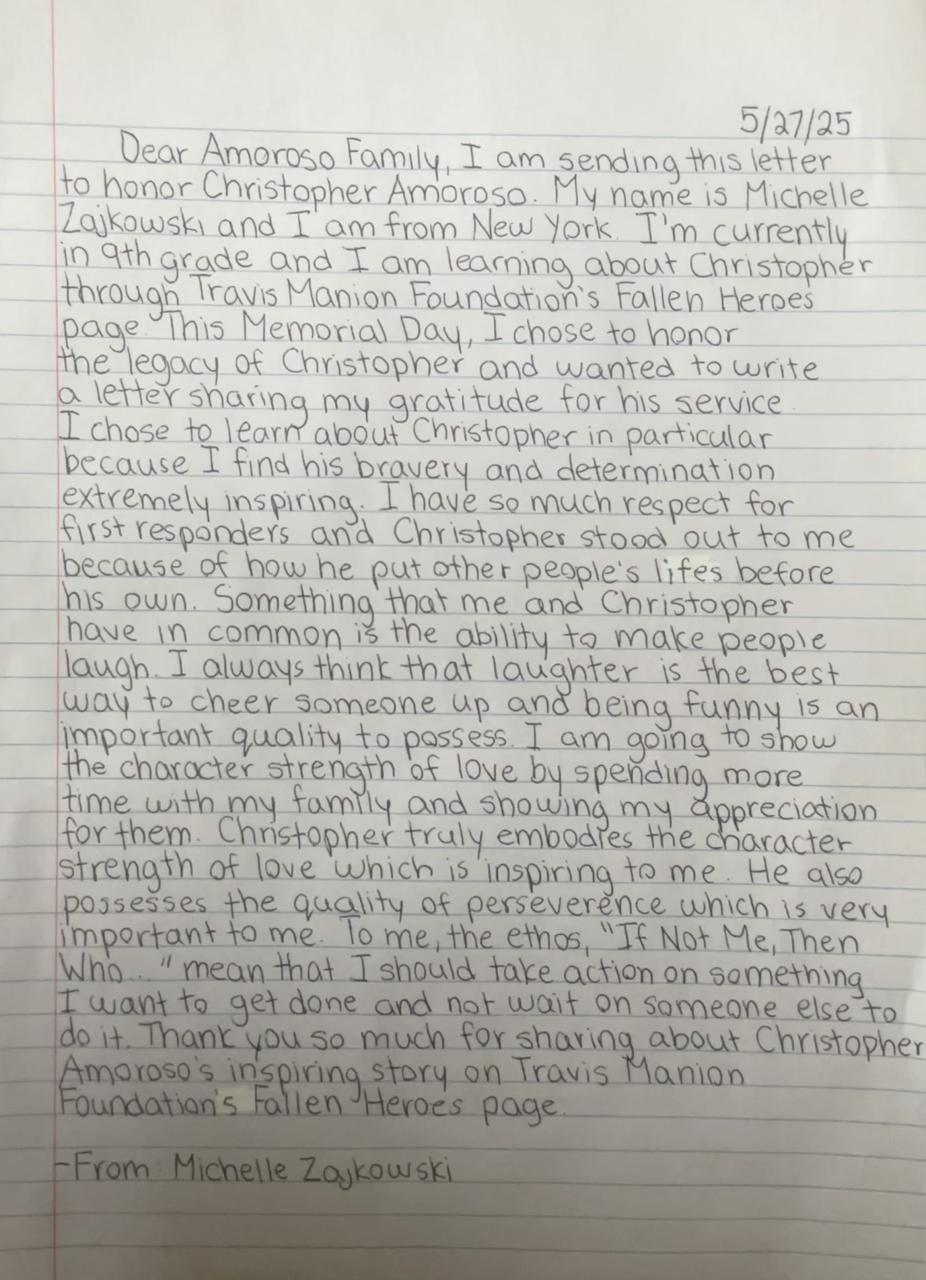 5/27/25
Dear Amoroso Family, I am sending this letter
to honor Christopher Amoroso. My name is Michelle
Zajkowski and I am from New York. I'm currently
in 9th grade and I am learning about Christopher
through Travis Manion Foundation's Fallen Heroes
page. This Memorial Day, I chose to honor
the legacy of Christopher and wanted to write
a letter sharing my gratitude for his service.
I chose to learn about Christopher in particular
because I find his bravery and determination
extremely inspiring. I have so much respect for
first responders and Christopher stood out to me
because of how he put other people's lifes before
his own. Something that me and Christopher
have in common is the ability to make people
laugh. I always think that laughter is the best
way to cheer someone up and being funny is an
important quality to possess. I am going to show
the character strength of love by spending more
time with my family and showing my appreciation
for them. Christopher truly embodies the character
strength of love which is inspiring to me. He also
possesses the quality of perseverence which is very
important to me. To me, the ethos, "If Not Me, Then
Who..." mean that I should take action on something
I want to get done and not wait on someone else to
do it. Thank you so much for sharing about Christopher
Amoroso's inspiring story on Travis Manion
Foundation's Fallen Heroes page.
-From Michelle Zajkowski